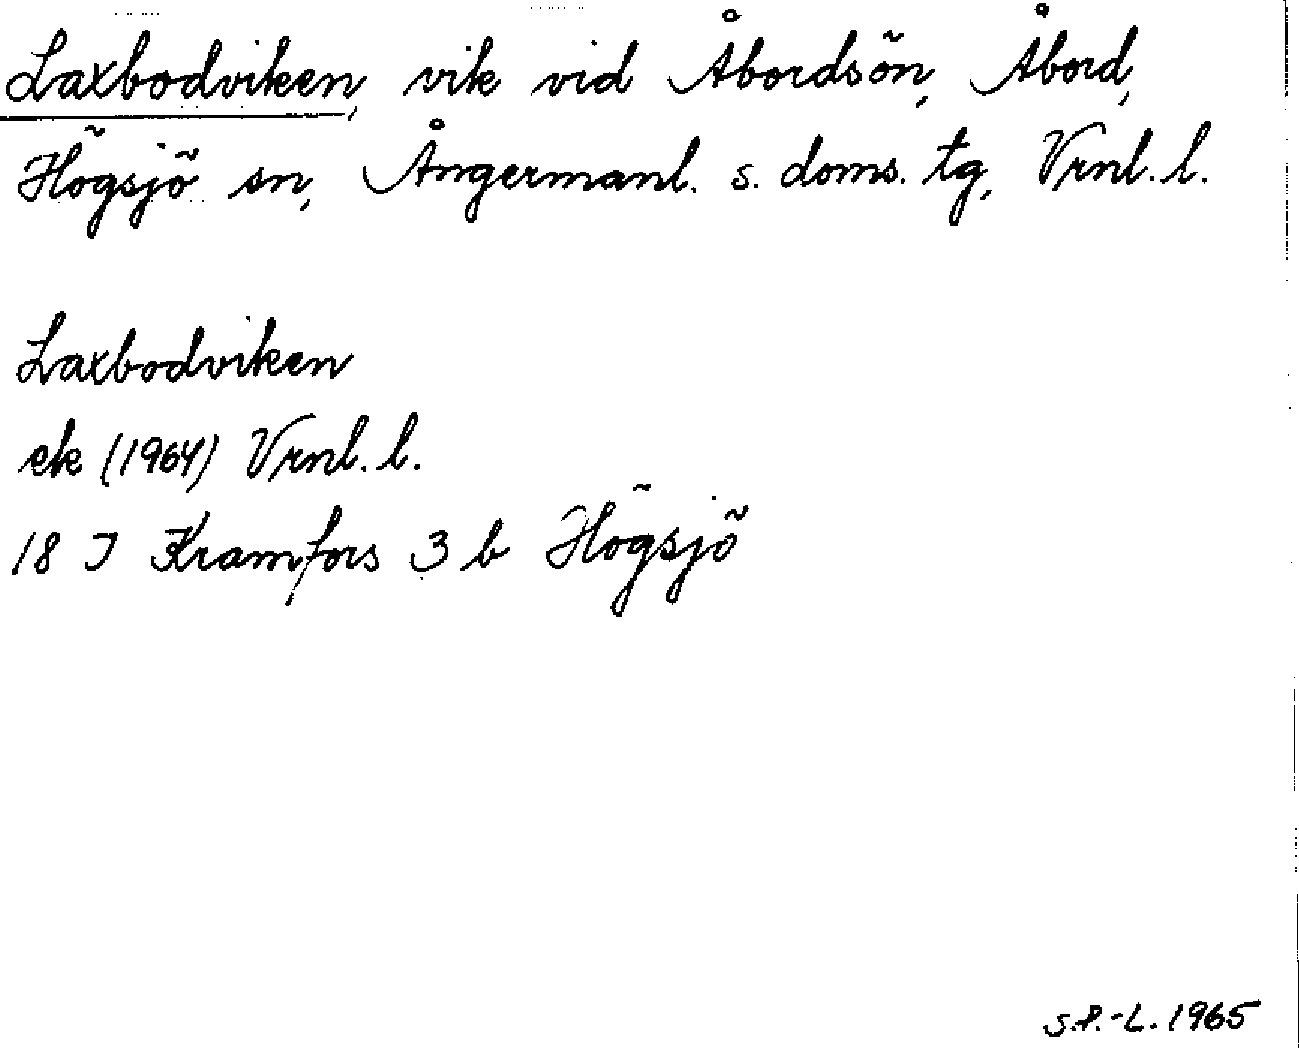 Laxbodviken, vik vid Åbordsön, Åbord,
Högsjö sn, Ångermanl. s. doms. tg, Vrnl. l.
Laxbodviken
ek (1964) Vrnl. l.
18 I Kramfors 3 b Högsjö
S.P.-L. 1965